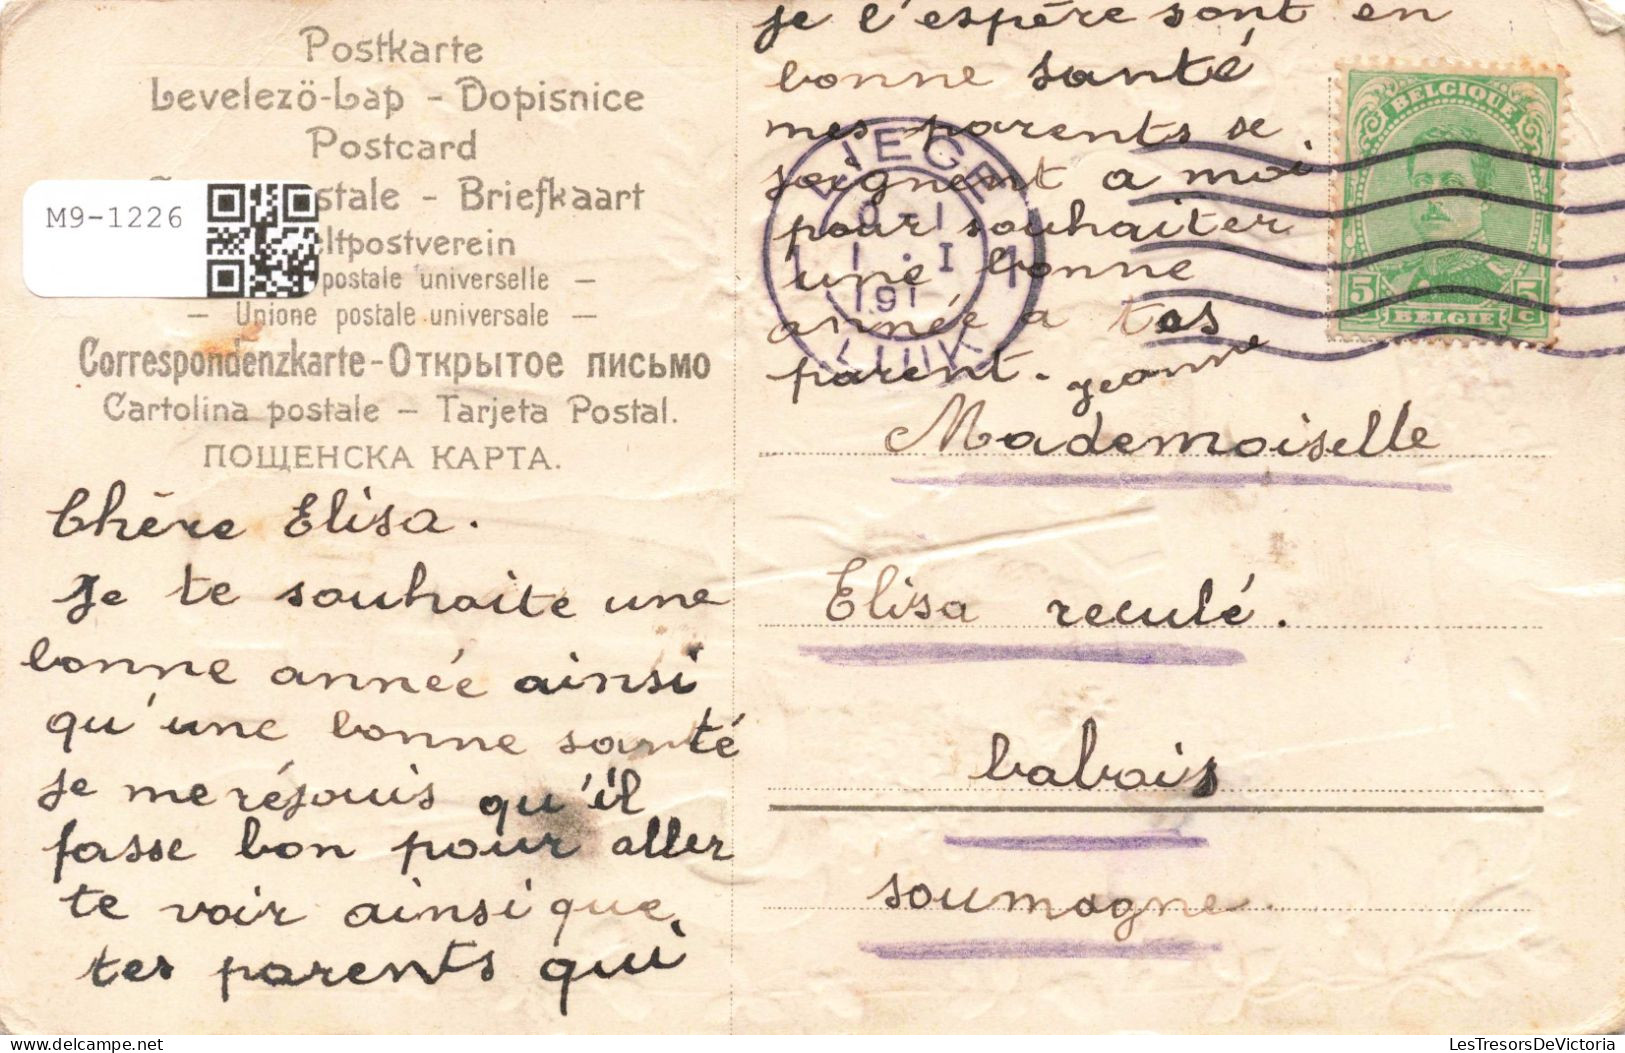 Postkarte
Levelezö-Lap - Dopisnice
Postcard
stale - Briefkaart
eltpostverein
postale universelle -
- Unione postale universale -
Correspondenzkarte-Открытое письмо
Cartolina postale - Tarjeta Postal.
ПОЩЕНСКА КАРТА.
M9-1226
Chère Elisa.
Je te souhaite une
bonne année ainsi
qu'une bonne santé
je me réjouis qu'il
fasse bon pour aller
te voir ainsi que
tes parents qui
je l'espère sont en
bonne santé
mes parents se
joignent a moi
pour souhaiter
une bonne
année a tes
parent. Jeanne
LIEGE
1 · I
191
LUIK
BELGIQUE
5 5
C C
BELGIE
Mademoiselle
Elisa reculé.
babois
soumagne.
delcampe.net
LesTresorsDeVictoria